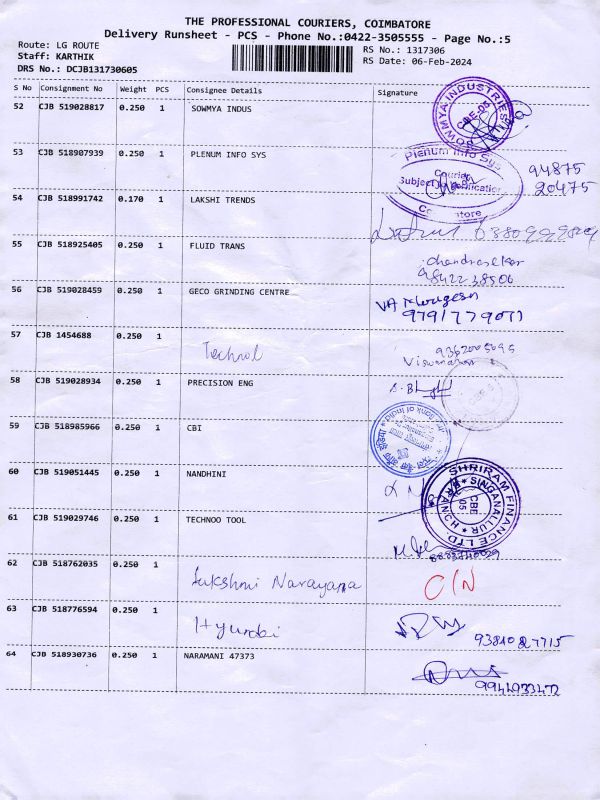 THE PROFESSIONAL COURIERS, COIMBATORE
Delivery Runsheet - PCS - Phone No.:0422-3505555 - Page No.:5
Route: LG ROUTE
RS No.: 1317306
Staff: KARTHIK
RS Date: 06-Feb-2024
DRS No.: DCJB131730605
S No Consignment No Weight PCS Consignee Details Signature
52 CJB 519028817 0.250 1 SOWMYA INDUS
SOWMYA INDUSTRIES CBE-05
53 CJB 518907939 0.250 1 PLENUM INFO SYS
Plenum Info Sys
Courier
Subject to
94875
20475
54 CJB 518991742 0.170 1 LAKSHI TRENDS
55 CJB 518925405 0.250 1 FLUID TRANS
chandrasekar
98422 38506
56 CJB 519028459 0.250 1 GECO GRINDING CENTRE
VA Murugesn
9791779071
57 CJB 1454688 0.250 1 Technol
9362005095
Viswanathan
58 CJB 519028934 0.250 1 PRECISION ENG
59 CJB 518985966 0.250 1 CBI
Bank of India
60 CJB 519051445 0.250 1 NANDHINI
SHRIRAM FINANCE LTD
SINGANALLUR BRANCH
CBE
05
61 CJB 519029746 0.250 1 TECHNOO TOOL
62 CJB 518762035 0.250 1 Lukshmi Narayana
C/N
63 CJB 518776594 0.250 1 Hyundai
9381027715
64 CJB 518930736 0.250 1 NARAMANI 47373
9944933472